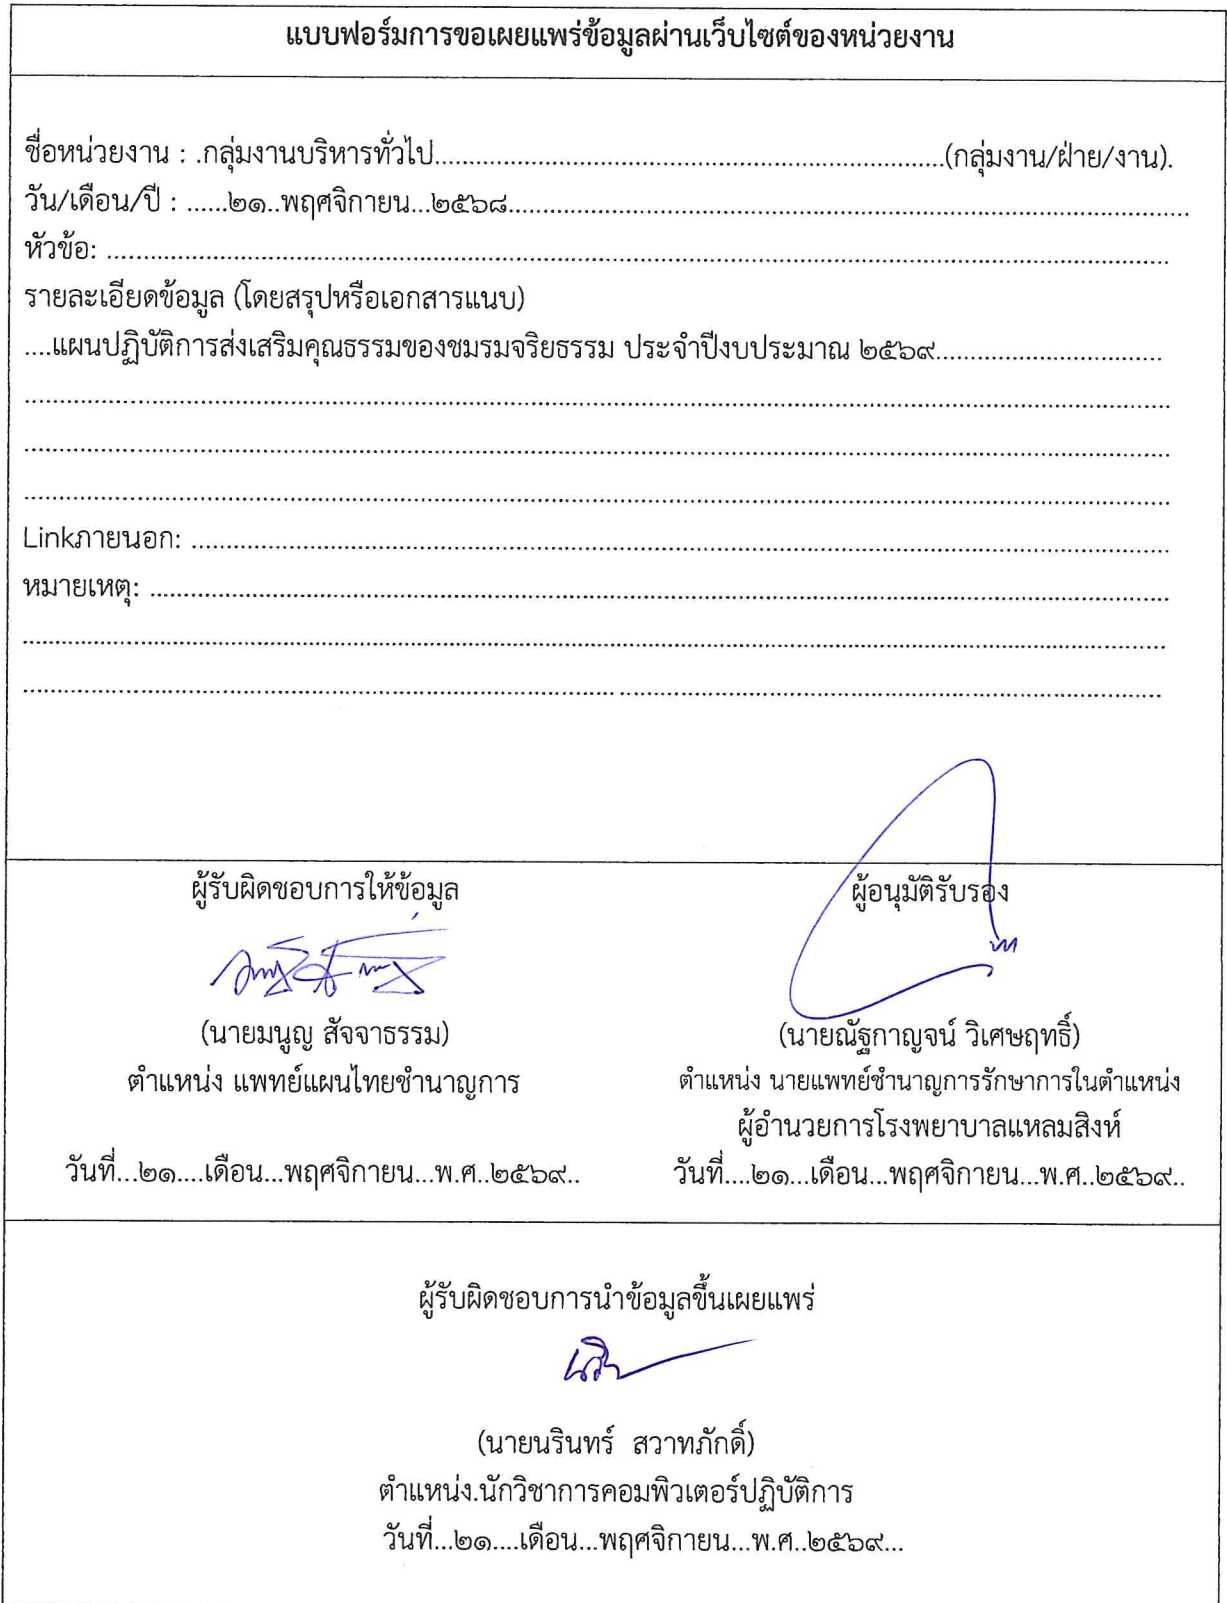 แบบฟอร์มการขอเผยแพร่ข้อมูลผ่านเว็บไซต์ของหน่วยงาน
ชื่อหน่วยงาน : .กลุ่มงานบริหารทั่วไป..........................................................................(กลุ่มงาน/ฝ่าย/งาน).
วัน/เดือน/ปี : ......๒๑..พฤศจิกายน...๒๕๖๘....................................................................................................
หัวข้อ: ..........................................................................................................................................................
รายละเอียดข้อมูล (โดยสรุปหรือเอกสารแนบ)
....แผนปฏิบัติการส่งเสริมคุณธรรมของชมรมจริยธรรม ประจำปีงบประมาณ ๒๕๖๙.................................
......................................................................................................................................................................
......................................................................................................................................................................
......................................................................................................................................................................
Linkภายนอก: ..............................................................................................................................................
หมายเหตุ: ....................................................................................................................................................
......................................................................................................................................................................
......................................................................................................................................................................
ผู้รับผิดชอบการให้ข้อมูล
(นายมนูญ สัจจาธรรม)
ตำแหน่ง แพทย์แผนไทยชำนาญการ
วันที่...๒๑....เดือน...พฤศจิกายน...พ.ศ..๒๕๖๙..
ผู้อนุมัติรับรอง
(นายณัฐกาญจน์ วิเศษฤทธิ์)
ตำแหน่ง นายแพทย์ชำนาญการรักษาการในตำแหน่ง
ผู้อำนวยการโรงพยาบาลแหลมสิงห์
วันที่....๒๑...เดือน...พฤศจิกายน...พ.ศ..๒๕๖๙..
ผู้รับผิดชอบการนำข้อมูลขึ้นเผยแพร่
(นายนรินทร์ สวาทภักดิ์)
ตำแหน่ง.นักวิชาการคอมพิวเตอร์ปฏิบัติการ
วันที่...๒๑....เดือน...พฤศจิกายน...พ.ศ..๒๕๖๙...